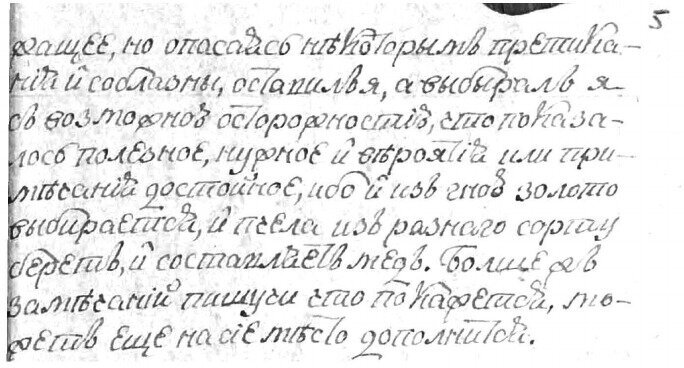 5
жащее, но опасаясь нѣкоторымъ претика-
нія и соблазны, оставилъ я, а выбиралъ я
съ возможноюъ осторожностію, что показа-
лось полезное, нужное и вѣроятія или при-
мѣчанія достойное, ибо и изъ гною золото
выбирается, и пчела изъ разнаго сорту
беретъ, и составляетъ медъ. Болше жъ
замѣчаній пишучи что покажется, мо-
жетъ еще на сіе мѣсто дополнится.